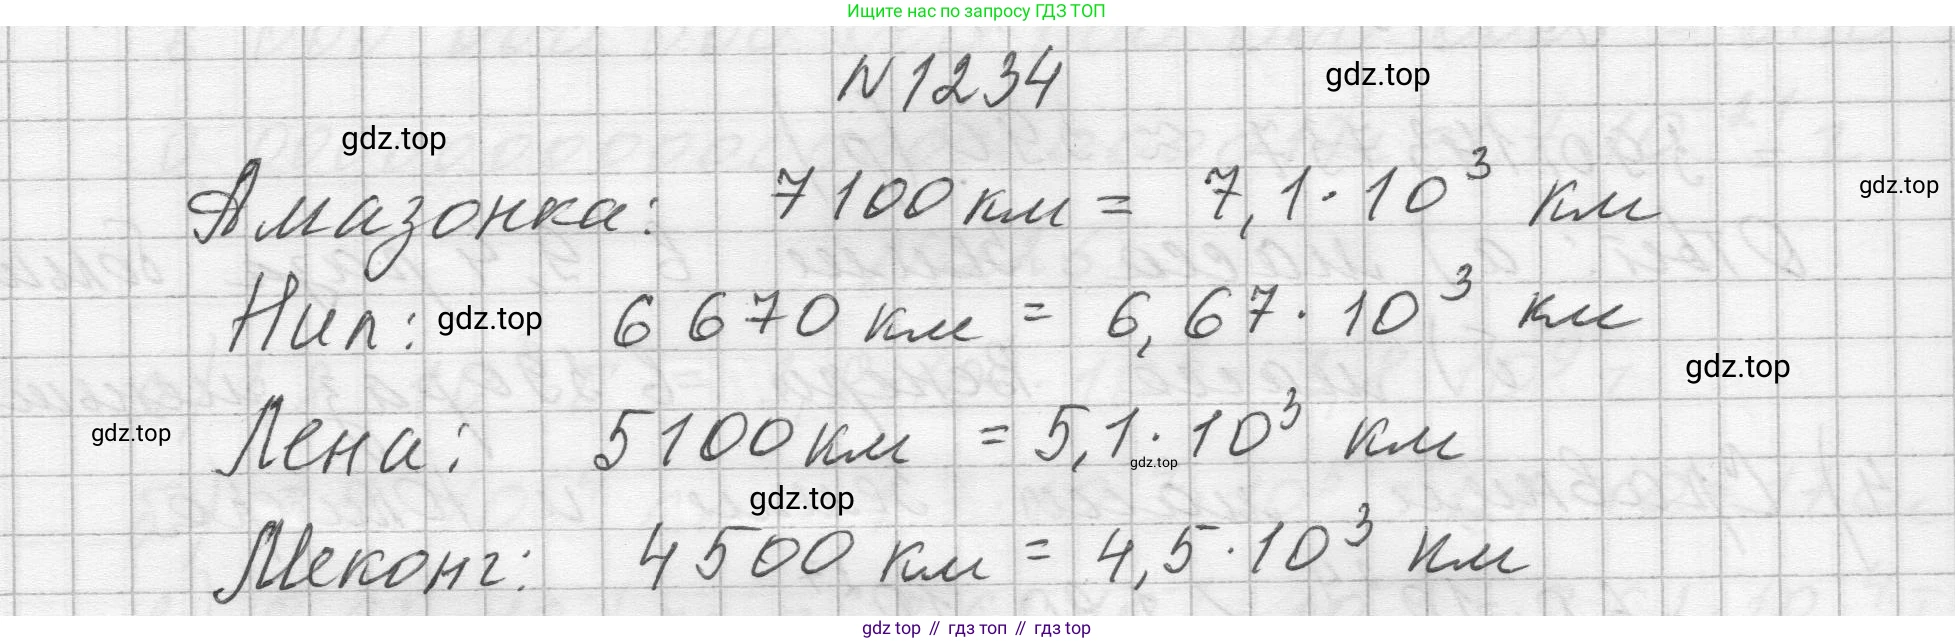 Ищите нас по запросу ГДЗ ТОП
N 1234
gdz.top
gdz.top
Амазонка: 7100 км = 7,1·10³ км
gdz.top
Нил: 6670 км = 6,67·10³ км
gdz.top
gdz.top
Лена: 5100 км = 5,1·10³ км
gdz.top
gdz.top
gdz.top
Меконг: 4500 км = 4,5·10³ км
gdz top // гдз топ // гдз top